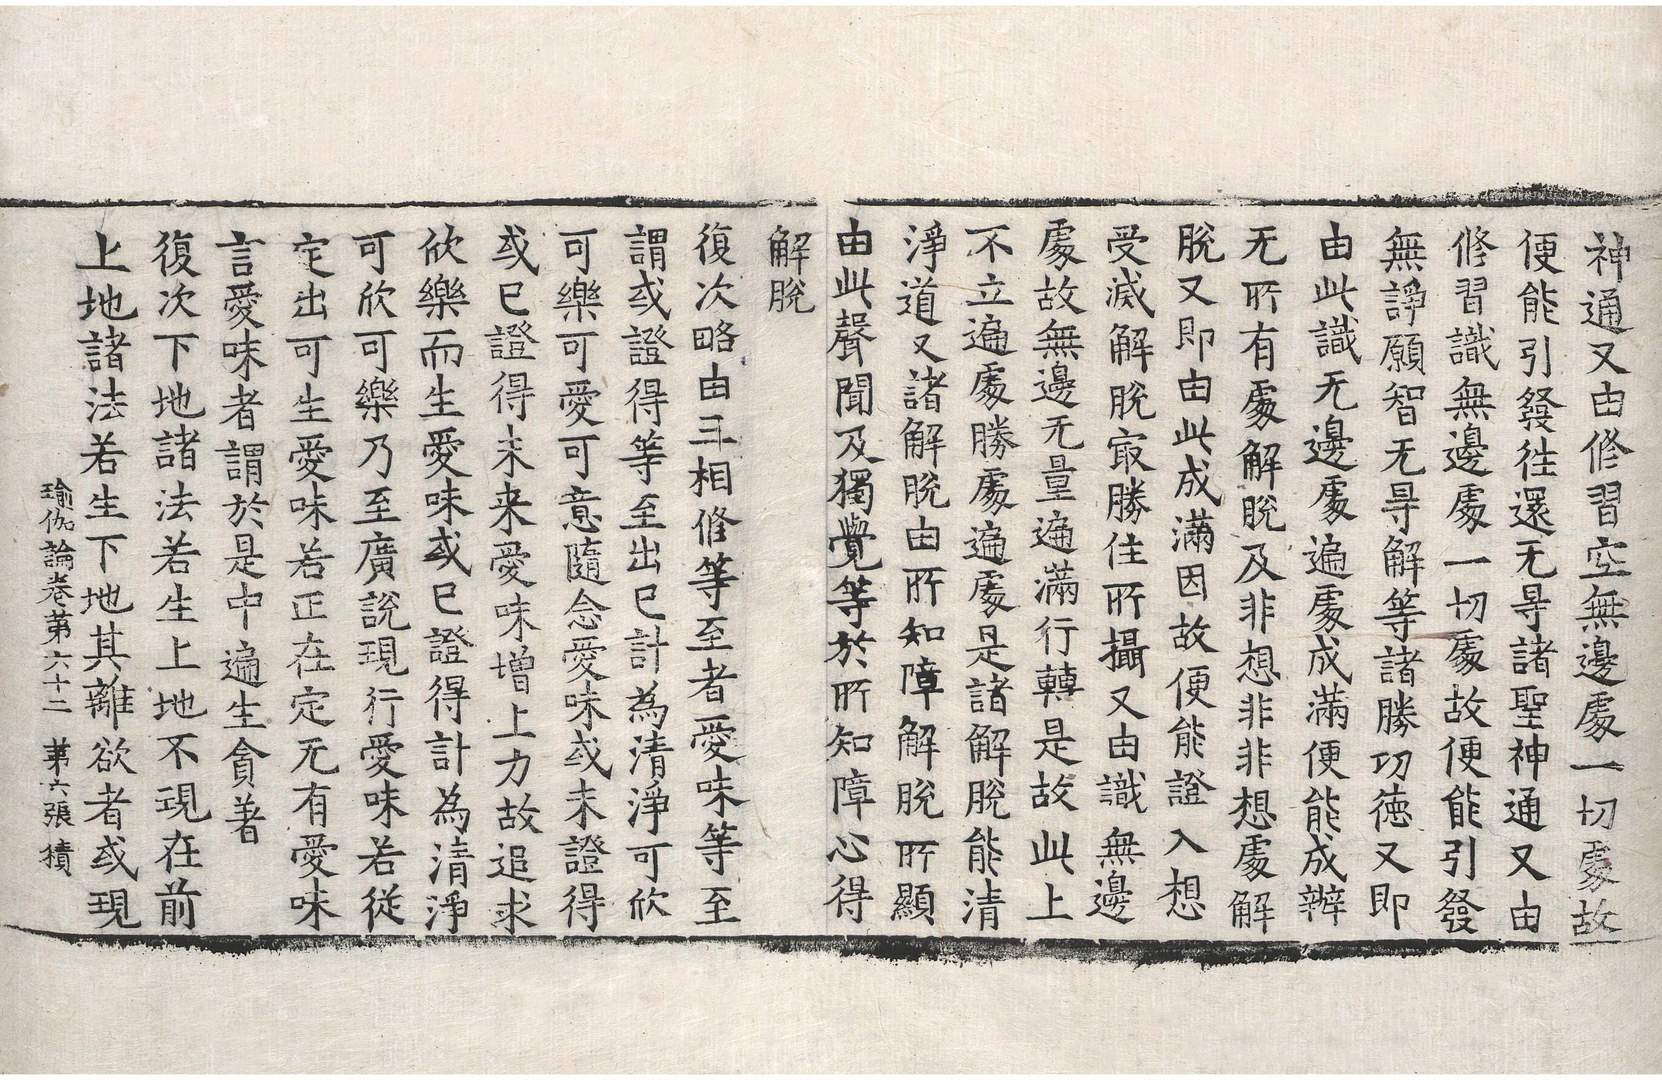 神通又由修習空無邊處一切處故
便能引發徃還无㝵諸聖神通又由
修習識無邊處一切處故便能引發
無諍願智无㝵解等諸勝功徳又即
由此識无邊處遍處成滿便能成辦
无所有處解脫及非想非非想處解
脫又即由此成滿因故便能證入想
受滅解脫㝡勝住所攝又由識無邊
處故無邊无量遍滿行轉是故此上
不立遍處勝處遍處是諸解脫能清
淨道又諸解脫由所知障解脫所顯
由此聲聞及獨覺等於所知障心得
解脫
復次略由三相修等至者愛味等至
謂或證得等至出已計為清淨可欣
可樂可愛可意隨念愛味或未證得
或已證得未来愛味增上力故追求
欣樂而生愛味或已證得計為清淨
可欣可樂乃至廣說現行愛味若從
定出可生愛味若正在定无有愛味
言愛味者謂於是中遍生貪著
復次下地諸法若生上地不現在前
上地諸法若生下地其離欲者或現
瑜伽論卷第六十二 第六張 積